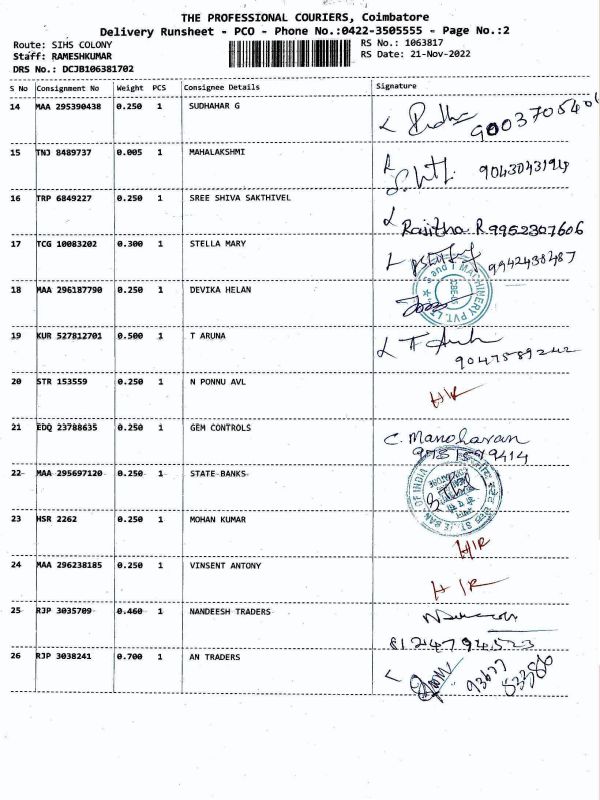 THE PROFESSIONAL COURIERS, Coimbatore
Delivery Runsheet - PCO - Phone No.:0422-3505555 - Page No.:2
Route: SIHS COLONY
RS No.: 1063817
Staff: RAMESHKUMAR
RS Date: 21-Nov-2022
DRS No.: DCJB106381702
S No Consignment No Weight PCS Consignee Details Signature
14 MAA 295390438 0.250 1 SUDHAHAR G
15 TNJ 8489737 0.005 1 MAHALAKSHMI
9043043194
16 TRP 6849227 0.250 1 SREE SHIVA SAKTHIVEL
Rajitha.R 9952307606
17 TCG 10083202 0.300 1 STELLA MARY
9942438487
S and T MACHINERY PVT. LTD.
18 MAA 296187790 0.250 1 DEVIKA HELAN
19 KUR 527812701 0.500 1 T ARUNA
9047589242
20 STR 153559 0.250 1 N PONNU AVL
21 EDQ 23788635 0.250 1 GEM CONTROLS
C. Manoharan
22 MAA 295697120 0.250 1 STATE BANKS
BANK OF INDIA
23 HSR 2262 0.250 1 MOHAN KUMAR
H/R
24 MAA 296238185 0.250 1 VINSENT ANTONY
H/R
25 RJP 3035709 0.460 1 NANDEESH TRADERS
8124794523
26 RJP 3038241 0.700 1 AN TRADERS
93677
83386